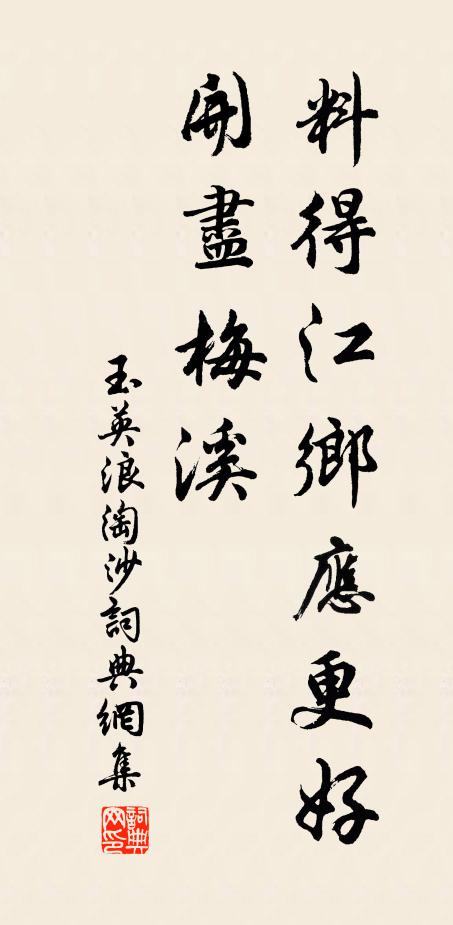 料得江鄉應更好
開盡梅溪
玉英浪淘沙詞典網集
詞典網印